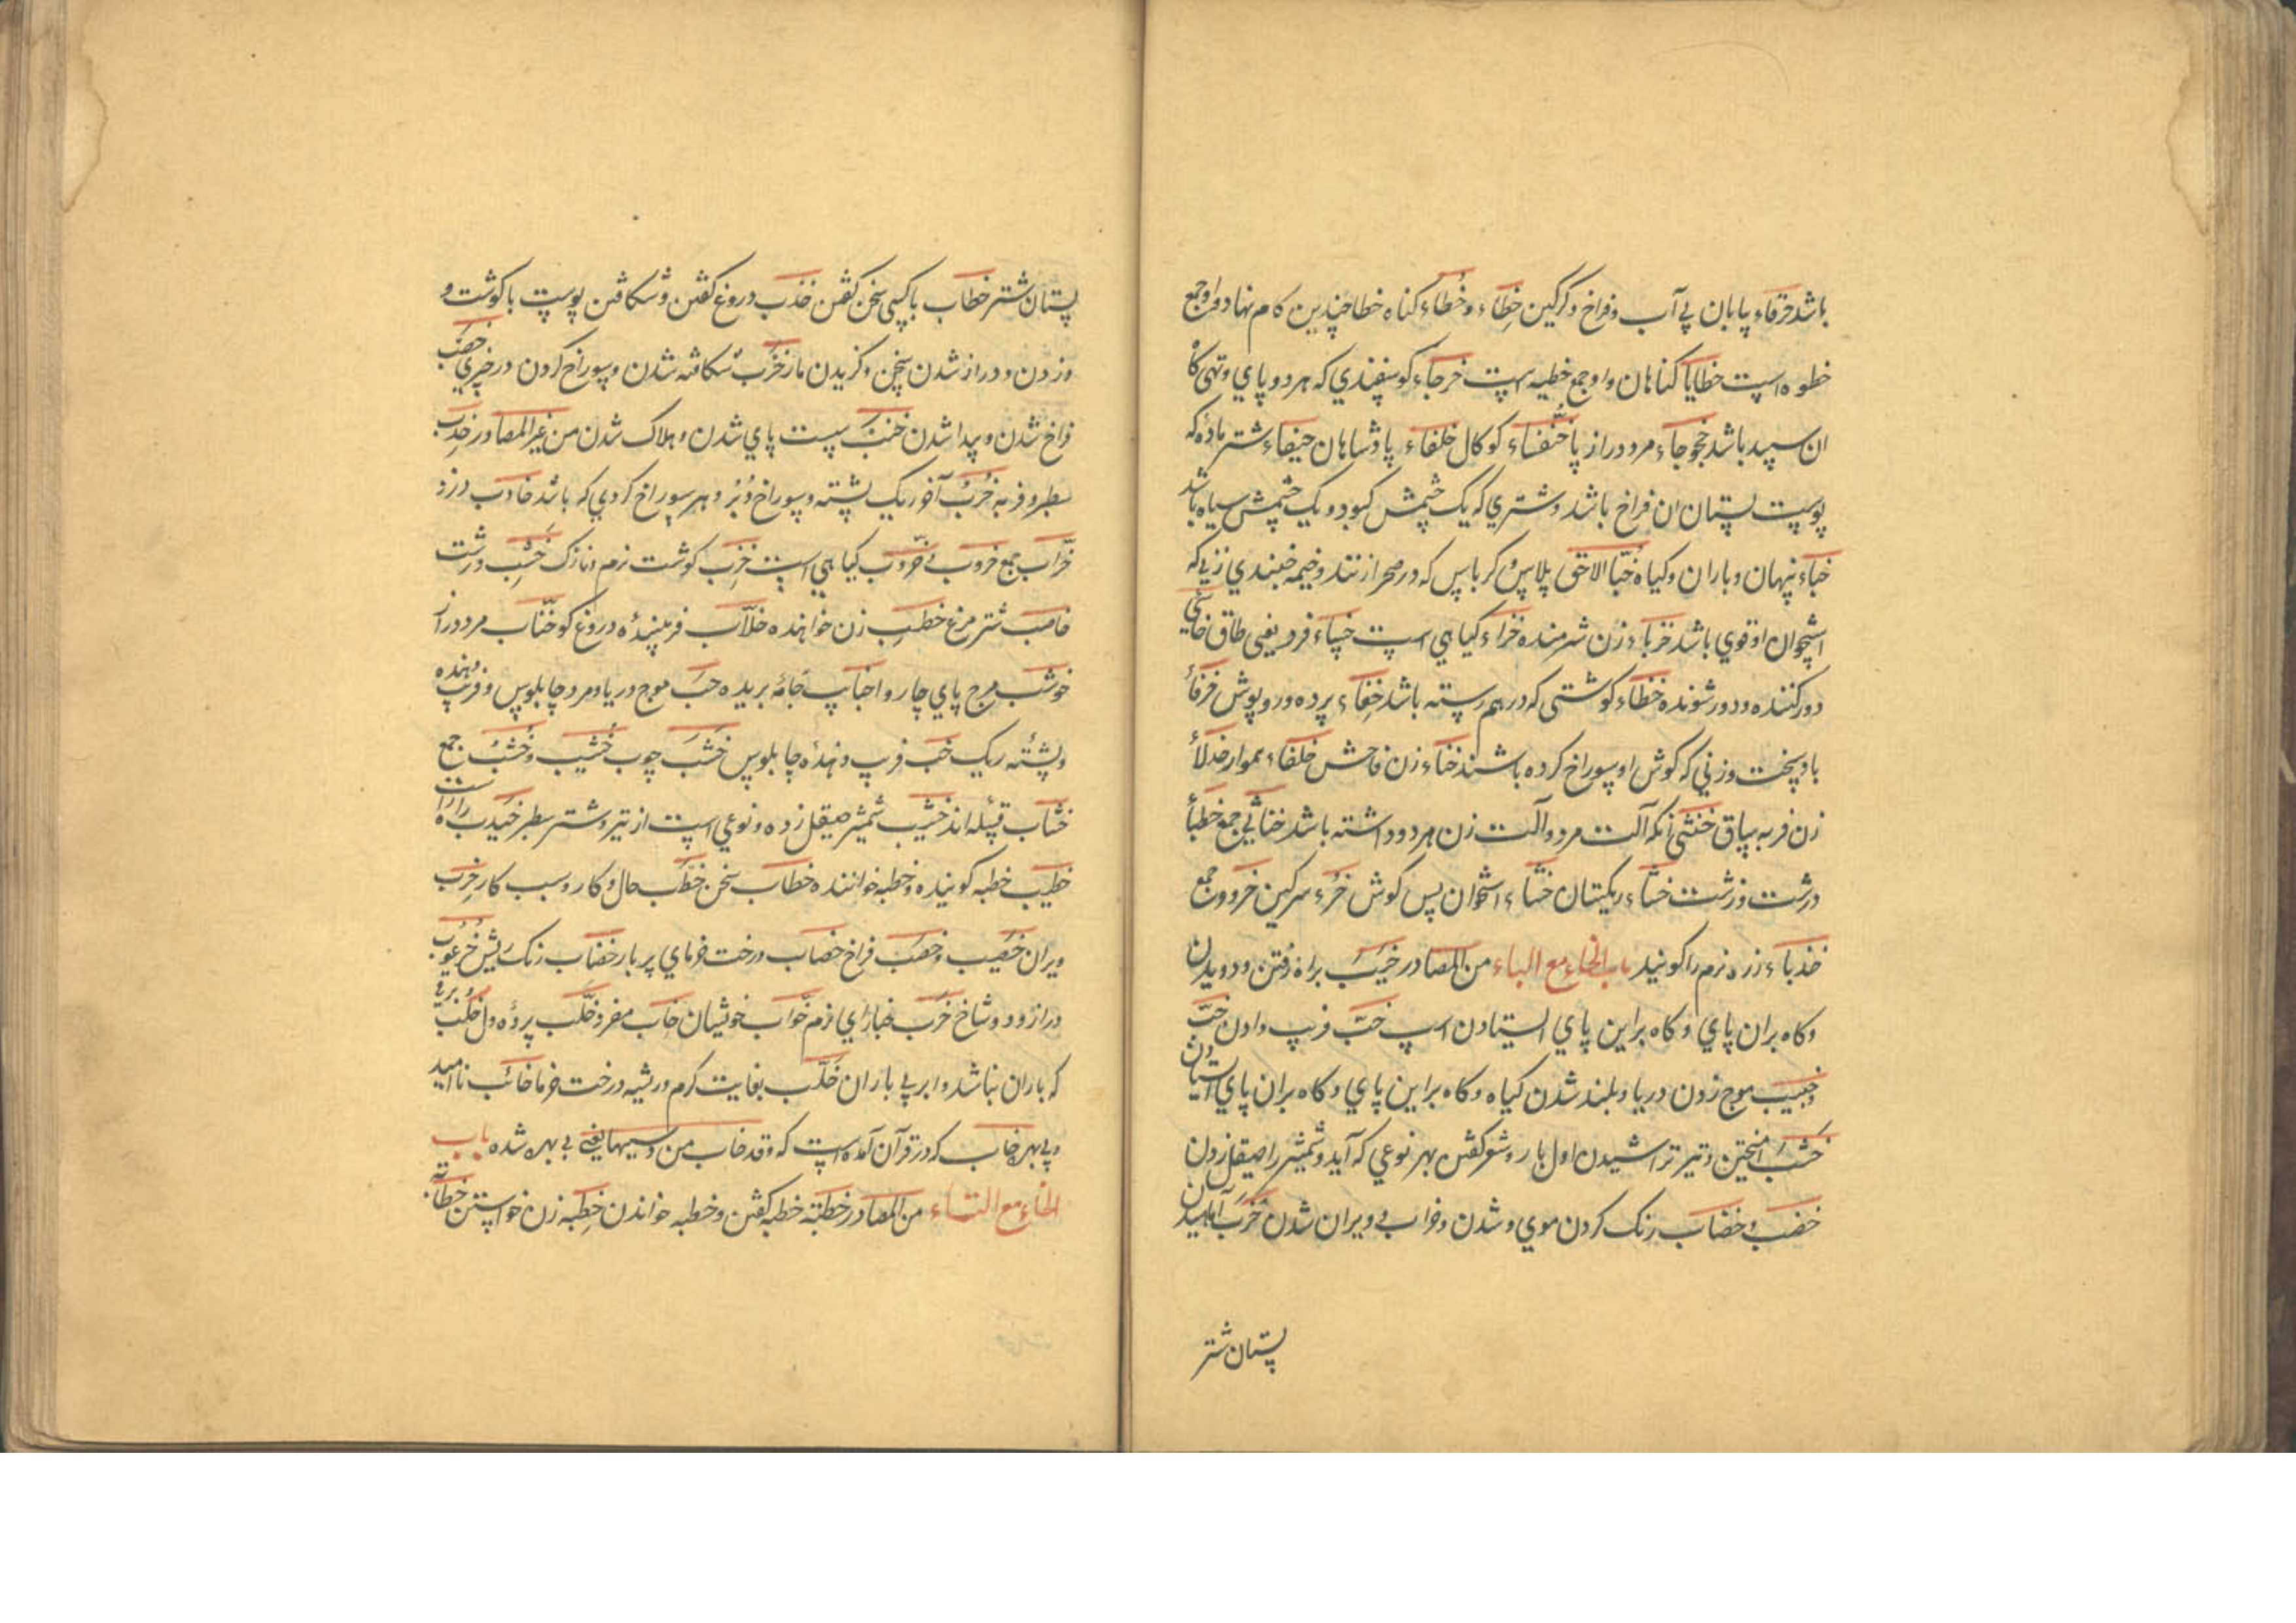 باشد خرقاء بیابان بی آب و فراخ و کرکین خطاء و خُطاء کناه خطا چندین کام نهاد و او جمع
خطوه است خطایا کناهان و او جمع خطیه است خرجاء کوسفندی که هر دو پای و تهی کاه
ان سپید باشد خجوجاء مرد دراز پا خنفساء کوکال خلفاء پادشاهان خیفاء شتر ماده که
پوست پستان ان فراخ باشد و شتری که یک چشمش کبود و یک چشمش سیاه باشد
خباء پنهان و باران و کیاه خباء پلاس و کرباس که در صحرا زنند و خیمه زنی که
استخوان او قوی باشد خزباء زن شرمنده خزاء کیاهی است خساء فرد یعنی طاق خاسی
دور کننده و دور شونده خظاء کوشتی که در هم رسته باشد خفاء پرده و روپوش خرقاء
باد سخت و زنی که کوش او سوراخ کرده باشند خناء زن فاحش خلقاء هموار خدلاء
زن فربه ساق خنثی آنکه آلت مرد و آلت زن هر دو داشته باشد خناثی جمع خطباء
درشت و زشت خشاء ریکستان خششاء استخوان پس کوش خرء سرکین خروون جمع
خدباء زره نرم را کویند باب الخاء مع الباء من المصادر خبب براه رفتن و دویدن
و کاه بران پای و کاه براین پای ایستادن اسپ خبّ فریب دادن خبّ
خبیب موج زدن دریا و بلند شدن کیاه و کاه براین پای و کاه بران پای ایستادن
خشب آمیختن و تیر تراشیدن اول بار و شعر کفتن بهر نوعی که آید و شمشیر را صیقل زدن
خضب و خضاب رنک کردن موی و شدن و خراب ویران شدن خزب آماسیدن
پستان شتر
پستان شتر خطاب با کسی سخن کفتن خدب دروغ کفتن و شکافتن پوست با کوشت و
زدن و دراز شدن سخن و کزیدن مار خرب شکافته شدن و سوراخ کردن در چیزی خصب
فراخ شدن و پیدا شدن خنب سست پای شدن و هلاک شدن من غیر المصادر خدب
سطبر و فربه خرب آخر ریک پشته و سوراخ دُبُر و هر سوراخ کردی که باشد خارب دزد
خرّاب جمع خروب خرّوب کیاهی است خزب کوشت نرم و نازک خشب درشت
خاضب شتر مرغ خطب زن خواهنده خلّاب فریبنده دروغ کو خنّاب مرد دراز
خوشب پای چاروا خبایب جامه بریده خب موج دریا و مرد چاپلوس و فریب دهنده
و پشته ریک خب فریب دهنده چاپلوس خشب چوب خشیب و خشب جمع
خشاب قبیله اند خشیب شمشیر صیقل زده و نوعی است از تیر و شتر سطبر خیدب راه راست
خطیب خطبه کوینده و خطبه خواننده خطاب سخن خطب حال و کار و سبب کار خرب
ویران خصیب و خصب فراخ خصاب درخت خرمای پر بار خضاب رنک ریش خرعوب
دراز و دو شاخ خرب نرم خلب پرده دل خلب
که باران نباشد و ابر بی باران خلّب بغایت کرم و ریشه درخت خرما خائب ناامید
و بی بهره خاب که در قرآن آمده است که و قد خاب من دسیها یعنی بی بهره شده باب
الخاء مع التاء من المصادر خطبة خطبه کفتن و خطبه خواندن خطبه زن خواستن خطابة